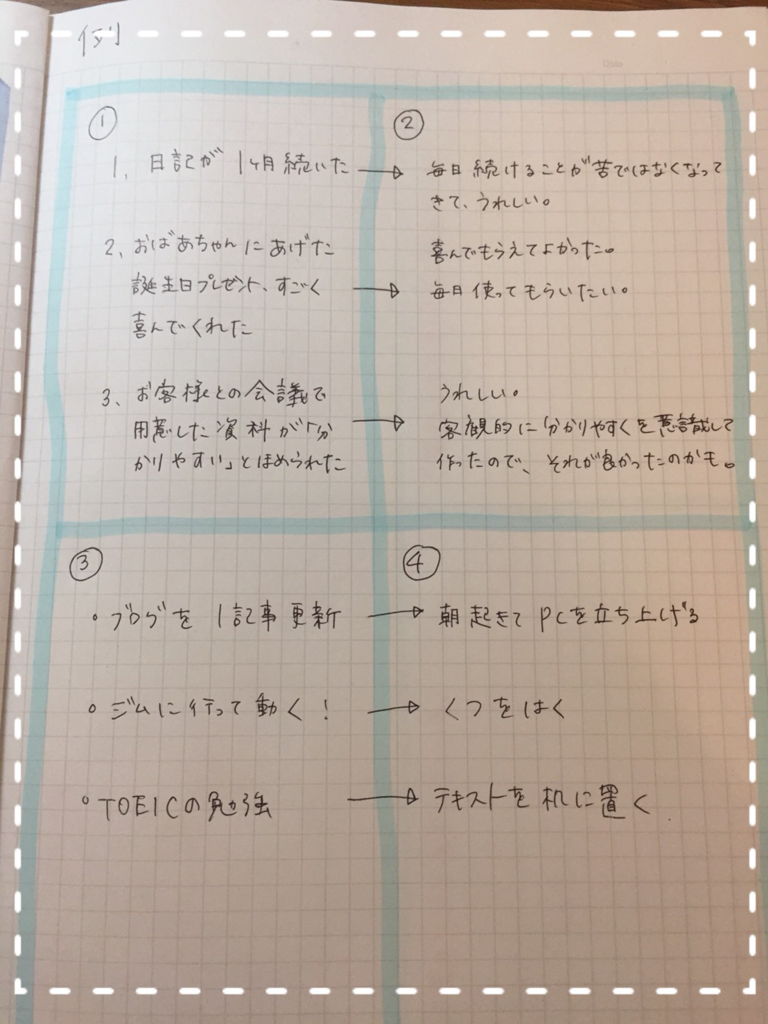 例
①
1、日記が1ヶ月続いた
2、おばあちゃんにあげた
誕生日プレゼント、すごく
喜んでくれた
3、お客様との会議で
用意した資料が「分
かりやすい」とほめられた
②
毎日続けることが苦ではなくなって
きて、うれしい。
喜んでもらえてよかった。
毎日使ってもらいたい。
うれしい。
客観的に「分かりやすくを意識して
作ったので、それが良かったのかも。
③
○ブログを1記事更新
○ジムに行って動く!
○TOEICの勉強
④
朝起きてPCを立ち上げる
くつをはく
テキストを机に置く